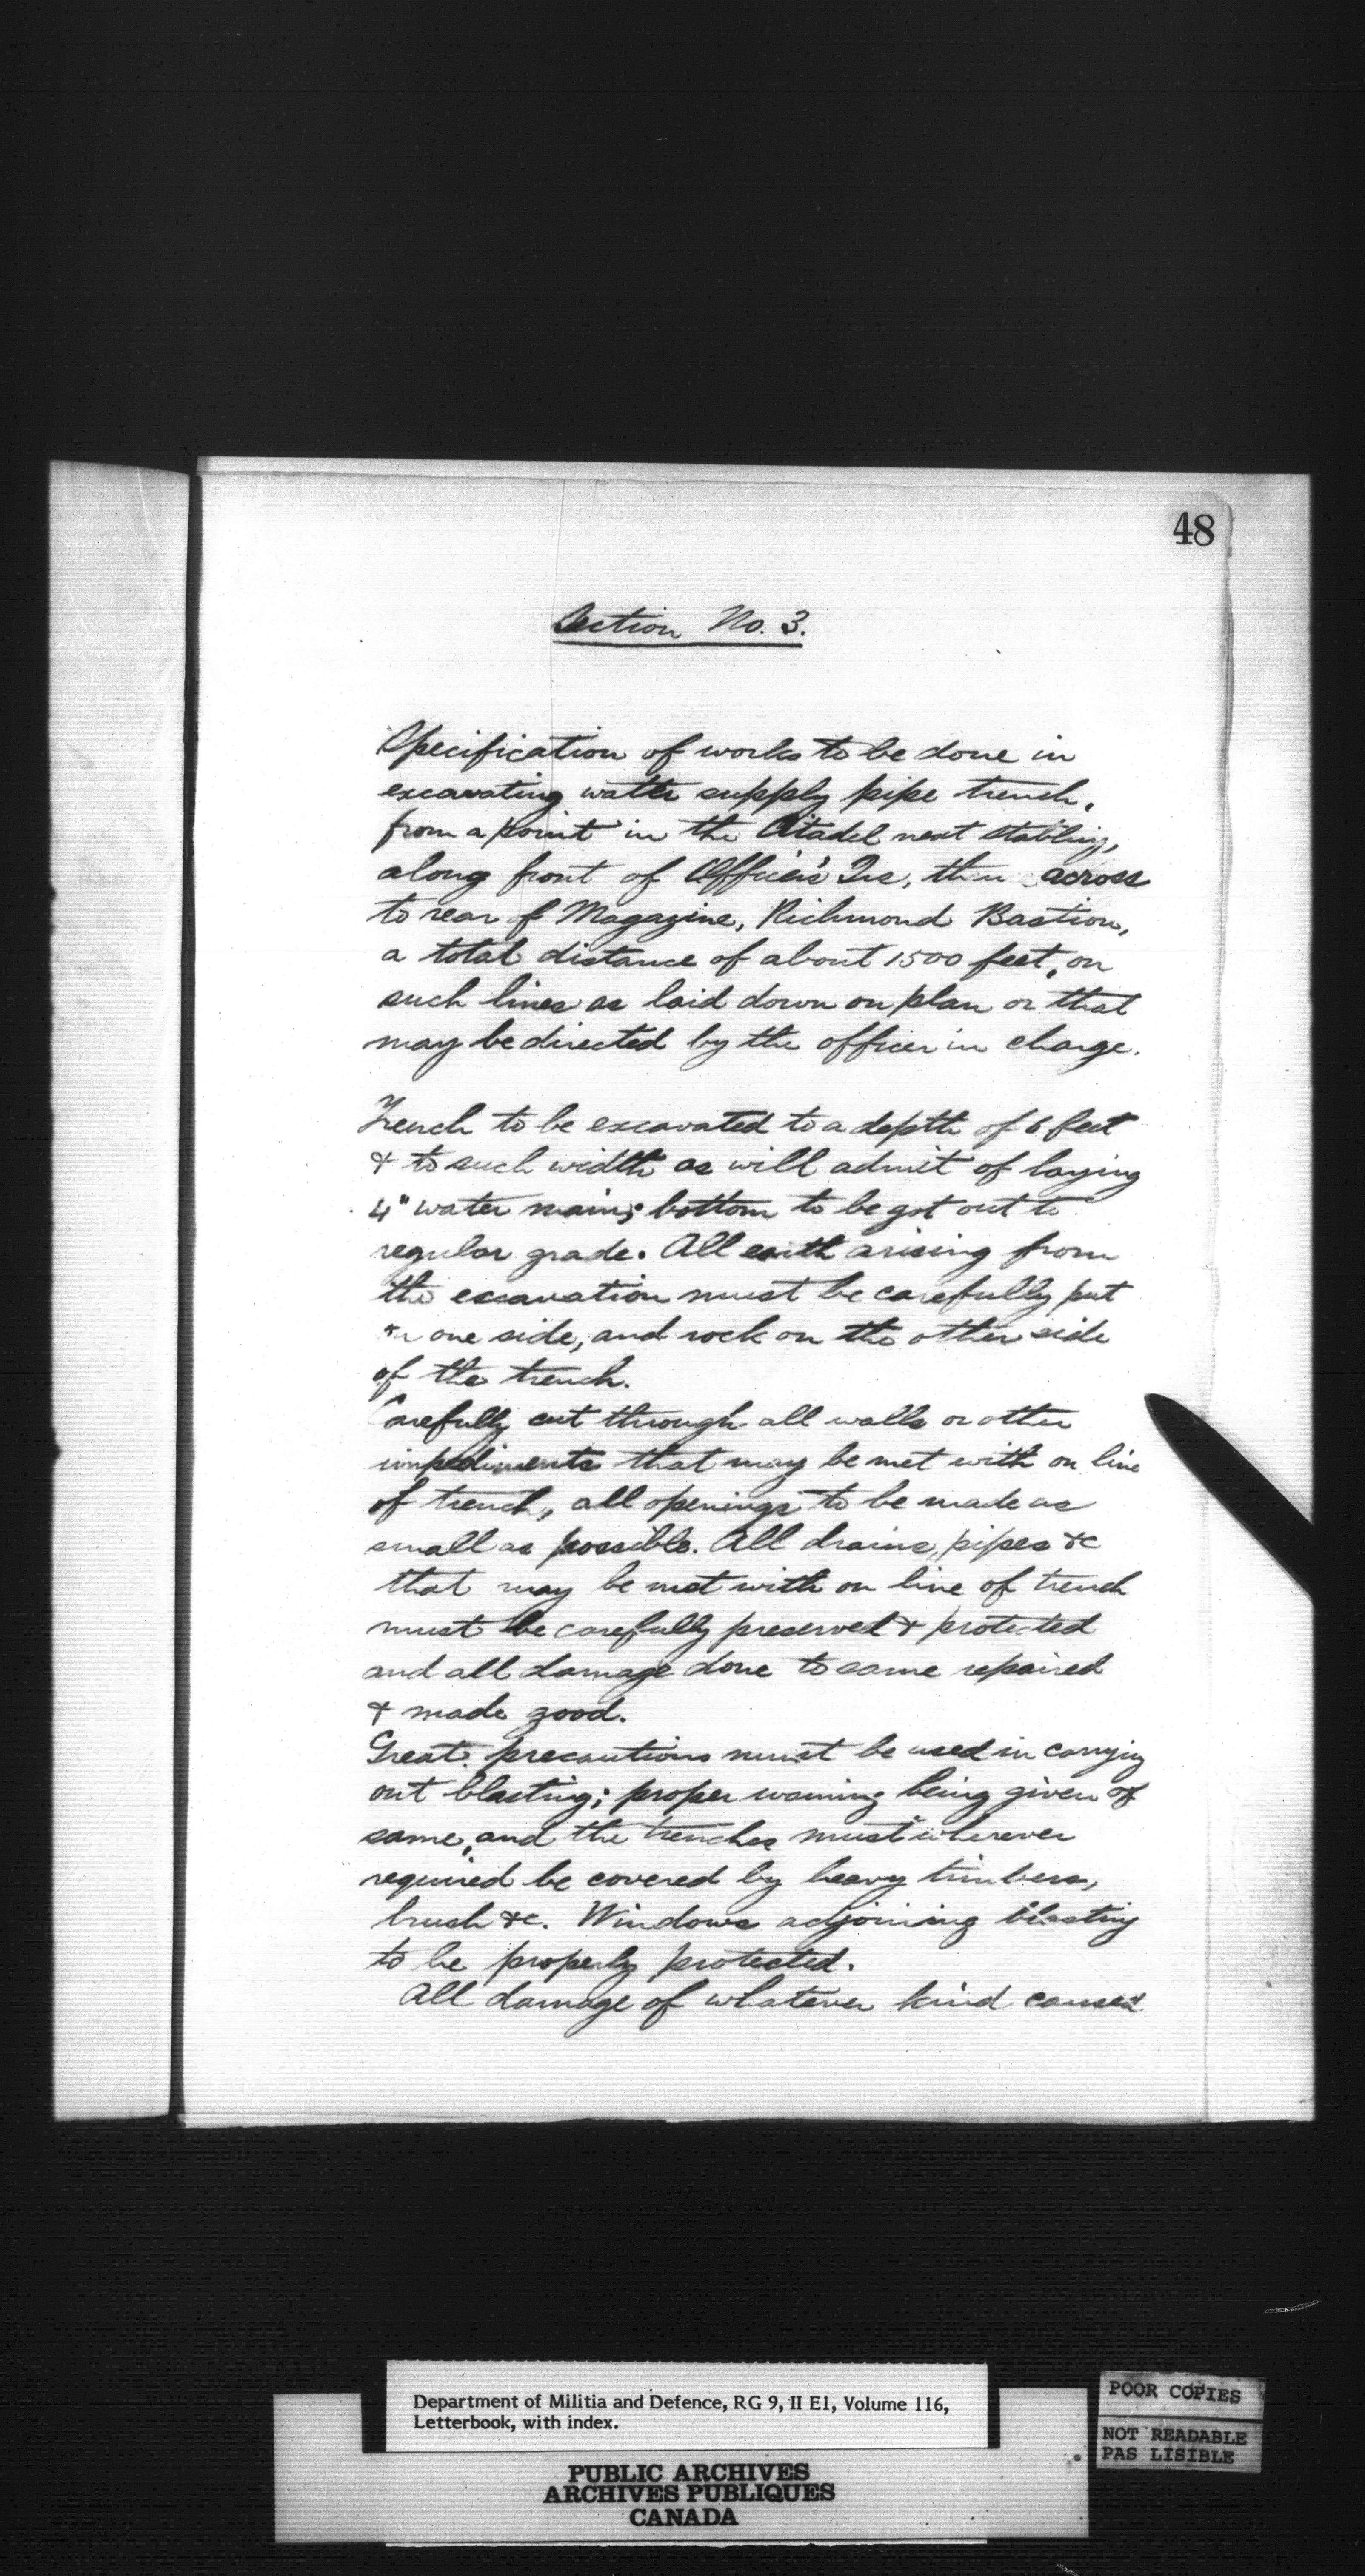 48
Section No. 3.
Specification of works to be done in
excavating water supply pipe trench,
from a point in the Citadel next stabling,
along front of Officers' Qrs, then across
to rear of Magazine, Richmond Bastion,
a total distance of about 1500 feet, on
such lines as laid down on plan or that
may be directed by the officer in charge.
Trench to be excavated to a depth of 6 feet
& to such width as will admit of laying
4" water mains; bottom to be got out to
regular grade. All earth arising from
the excavation must be carefully put
on one side, and rock on the other side
of the trench.
Carefully cut through all walls or other
impediments that may be met with on line
of trench, all openings to be made as
small as possible. All drains, pipes &c
that may be met with on line of trench
must be carefully preserved & protected
and all damage done to same repaired
& made good.
Great precautions must be used in carrying
out blasting; proper warning being given of
same, and the trenches must wherever
required be covered by heavy timbers,
brush &c. Windows adjoining blasting
to be properly protected.
All damage of whatever kind caused
Department of Militia and Defence, RG 9, II E1, Volume 116,
Letterbook, with index.
PUBLIC ARCHIVES
ARCHIVES PUBLIQUES
CANADA
POOR COPIES
NOT READABLE
PAS LISIBLE